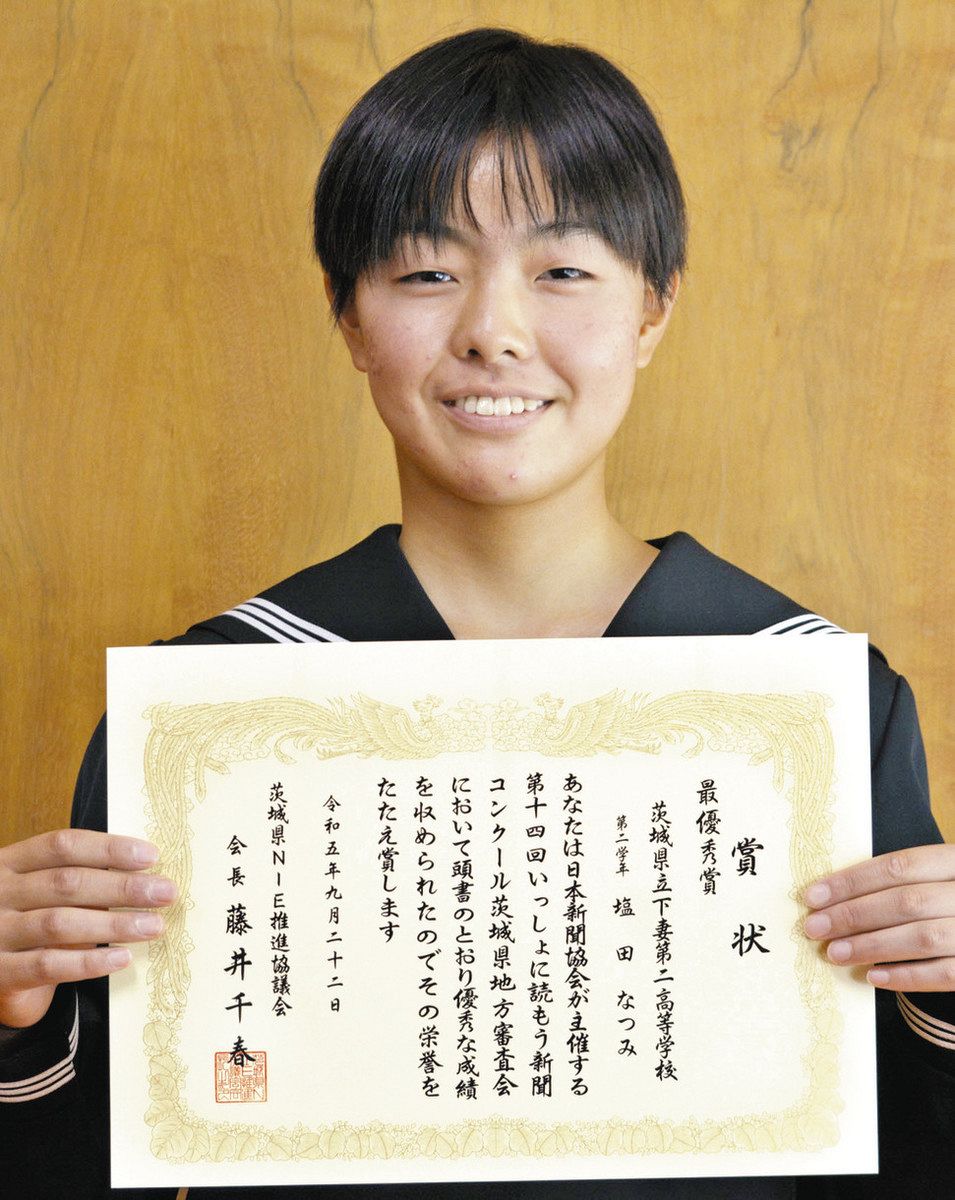 賞状
最優秀賞
茨城県立下妻第二高等学校
第二学年 塩田 なつみ
あなたは日本新聞協会が主催する
第十四回いっしょに読もう新聞
コンクール茨城県地方審査会
において頭書のとおり優秀な成績
を収められたのでその栄誉を
たたえ賞します
令和五年九月二十二日
茨城県NIE推進協議会
会長 藤井千春